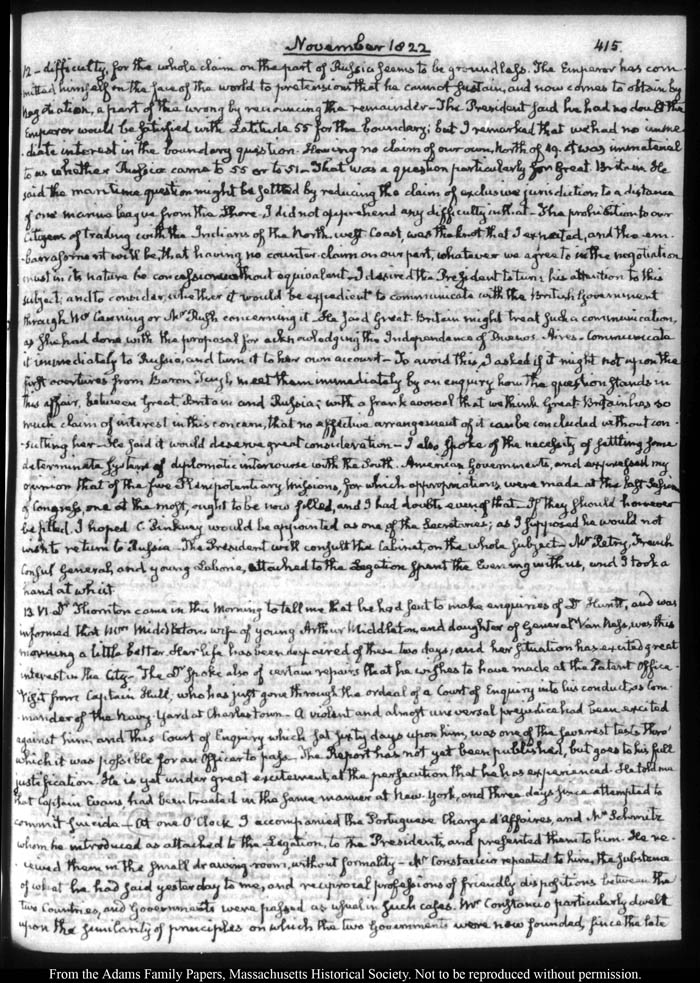 November 1822
415.
12 - difficulty, for the whole claim on the part of Russia seems to be groundless. The Emperor has com-
mitted himself in the face of the world to pretensions that he cannot sustain, and now comes to obtain by
negotiation, a part of the wrong by renouncing the remainder - The President said he had no doubt the
Emperor would be satisfied with Latitude 55 for the boundary; but I remarked that we had no imme-
diate interest in the boundary question. Having no claim of our own, North of 49. it was immaterial
to us whether Russia came to 55 or to 51 - That was a question particularly for Great Britain. He
said the maritime question might be settled by reducing the claim of exclusive jurisdiction to a distance
of one marine league from the Shore. I did not apprehend any difficulty in that - The prohibition to our
Citizens of trading with the Indians of the North-west Coast, was the knot that I expected, and the em-
barrassment will be, that having no counter-claim on our part, whatever we agree to in the negotiation
must in its nature be concession without equivalent - I desired the President to turn his attention to this
subject, and to consider, whether it would be expedient to communicate with the British Government
through Mr Canning or Mr Rush concerning it. He said Great-Britain might treat such a communication,
as she had done with the proposal for acknowledging the Independence of Buenos Ayres - Communicate
it immediately to Russia, and turn it to her own account - To avoid this, I asked if it might not upon the
first overtures from Baron Tuyl, meet them immediately by an enquiry how the question stands in
this affair, between Great Britain and Russia; with a frank avowal that we think Great Britain has so
much claim of interest in this concern, that no effective arrangement of it can be concluded without con-
sulting her - He said it would deserve great consideration - I also spoke of the necessity of settling some
determinate system of diplomatic intercourse with the South-American Governments, and expressed my
opinion that of the five Plenipotentiary Missions, for which appropriations were made at the last Session
of Congress, one at the most, ought to be now filled, and I had doubts even of that - If they should however
be filled, I hoped C. Pinkney would be appointed as one of the Secretaries; as I supposed he would not
wish to return to Russia - The President will consult the Cabinet, on the whole subject - Mr Petry, French
Consul General, and young Laborie, attached to the Legation spent the Evening with us, and I took a
hand at whist
13. VI. Dr Thornton came in this Morning to tell me that he had sent to make enquiries of Dr Huntt, and was
informed that Mrs Middleton, wife of young Arthur Middleton, and daughter of General Van Ness, was this
morning a little better. Her life has been despaired of these two days, and her situation has excited great
interest in the City - The Dr spoke also of certain repairs that he wishes to have made at the Patent Office -
Visit from Captain Hull, who has just gone through the ordeal of a Court of Enquiry into his conduct, as Com-
mander of the Navy Yard at Charlestown - A violent and almost universal prejudice had been excited
against him, and this Court of Enquiry which sat sixty days upon him, was one of the severest tests thro'
which it was possible for an Officer to pass. The Report has not yet been published, but goes to his full
justification. He is yet under great excitement, at the persecution that he has experienced. He told me
that Captain Evans, had been treated in the same manner at New-York, and three days since attempted to
commit suicide - At one O'Clock I accompanied the Portuguese Chargé d'Affaires, and Mr Schmitz
whom he introduced as attached to the Legation, to the President, and presented them to him. He re-
ceived them in the small drawing room, without formality - Mr Constancio repeated to him, the substance
of what he had said yesterday to me, and reciprocal professions of friendly dispositions between the
two Countries, and Governments were passed as usual in such cases. Mr Constancio particularly dwelt
upon the similarity of principles on which the two Governments were now founded, since the late
From the Adams Family Papers, Massachusetts Historical Society. Not to be reproduced without permission.